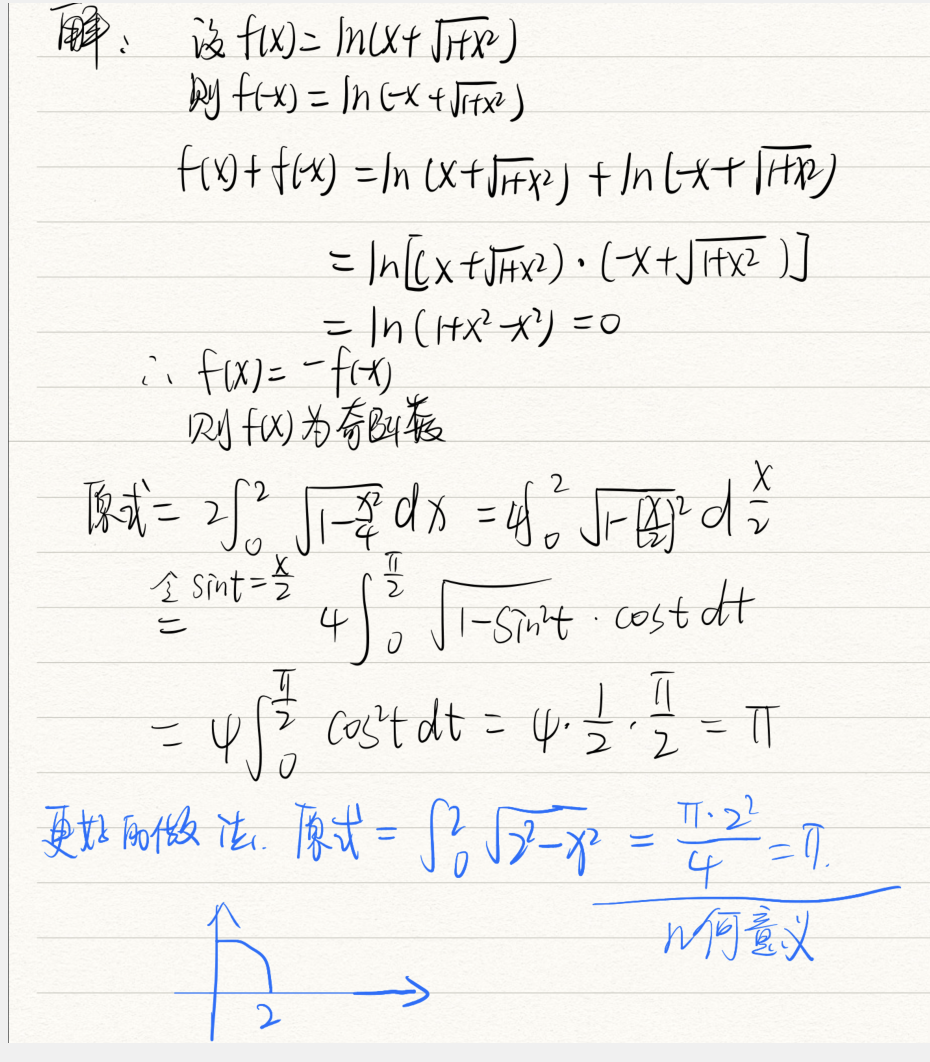 解: 设 f(x) = ln(x + √(1+x²))
则 f(-x) = ln(-x + √(1+x²))
f(x) + f(-x) = ln(x + √(1+x²)) + ln(-x + √(1+x²))
= ln[(x + √(1+x²)) · (-x + √(1+x²))]
= ln(1+x²-x²) = 0
∴ f(x) = -f(-x)
则 f(x) 为奇函数
原式 = 2∫₀² √(1 - x²/4) dx = 4∫₀² √(1 - (x/2)²) d x/2
令 sint = x/2
= 4∫₀^(π/2) √(1 - sin²t) · cost dt
= 4∫₀^(π/2) cos²t dt = 4 · 1/2 · π/2 = π
更好的做法. 原式 = ∫₀² √(2² - x²) = π·2²/4 = π.
几何意义
2